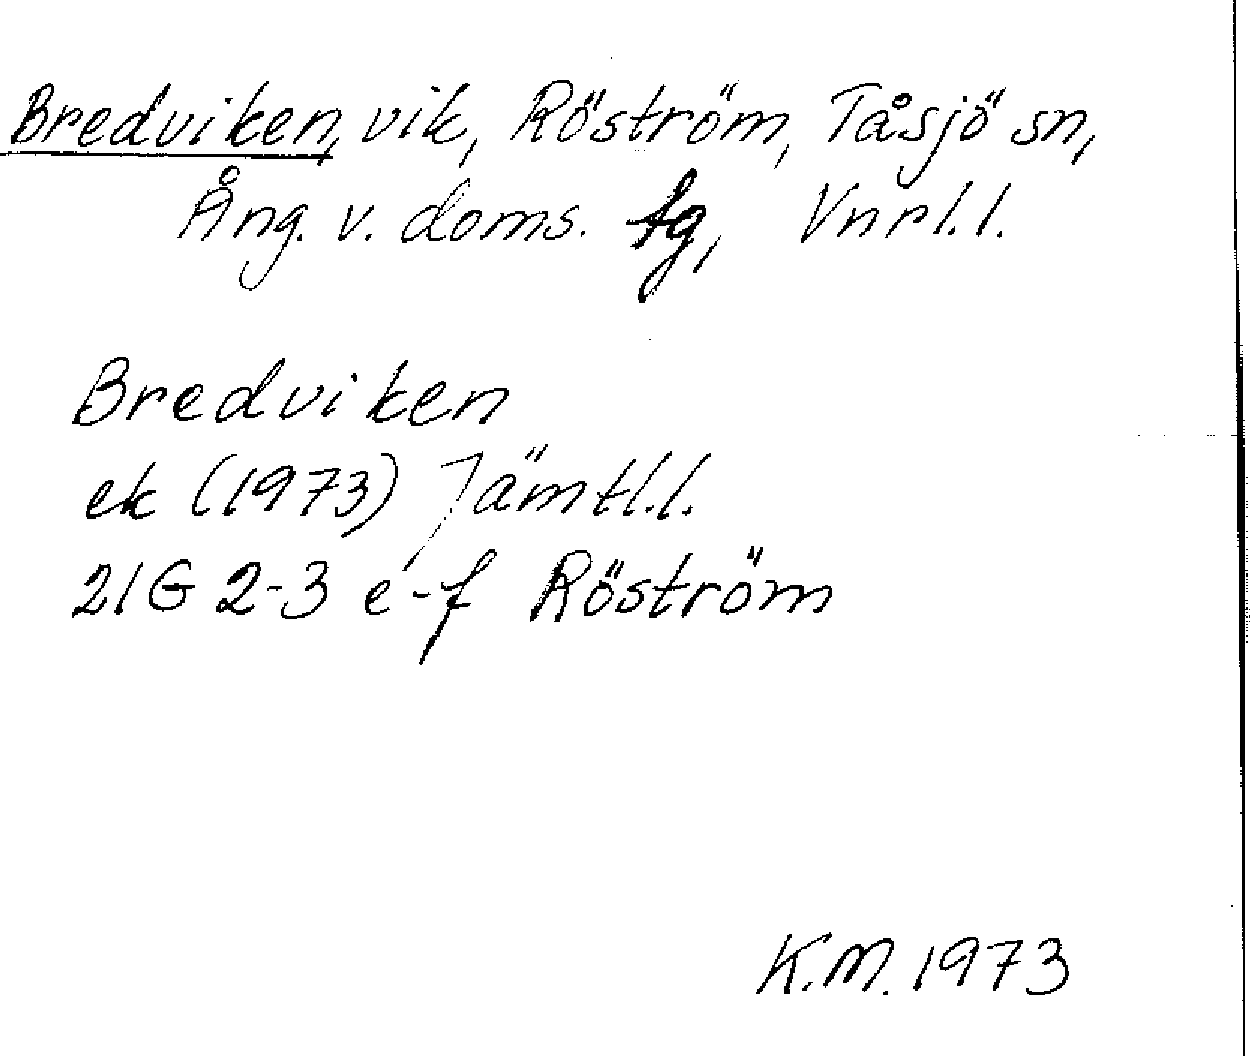 Bredviken, vik, Röström, Tåsjö sn,
Ång. v. doms. tg, Vnrl.l.
Bredviken
ek (1973) Jämtl.l.
21G 2-3 e-f Röström
K.M. 1973